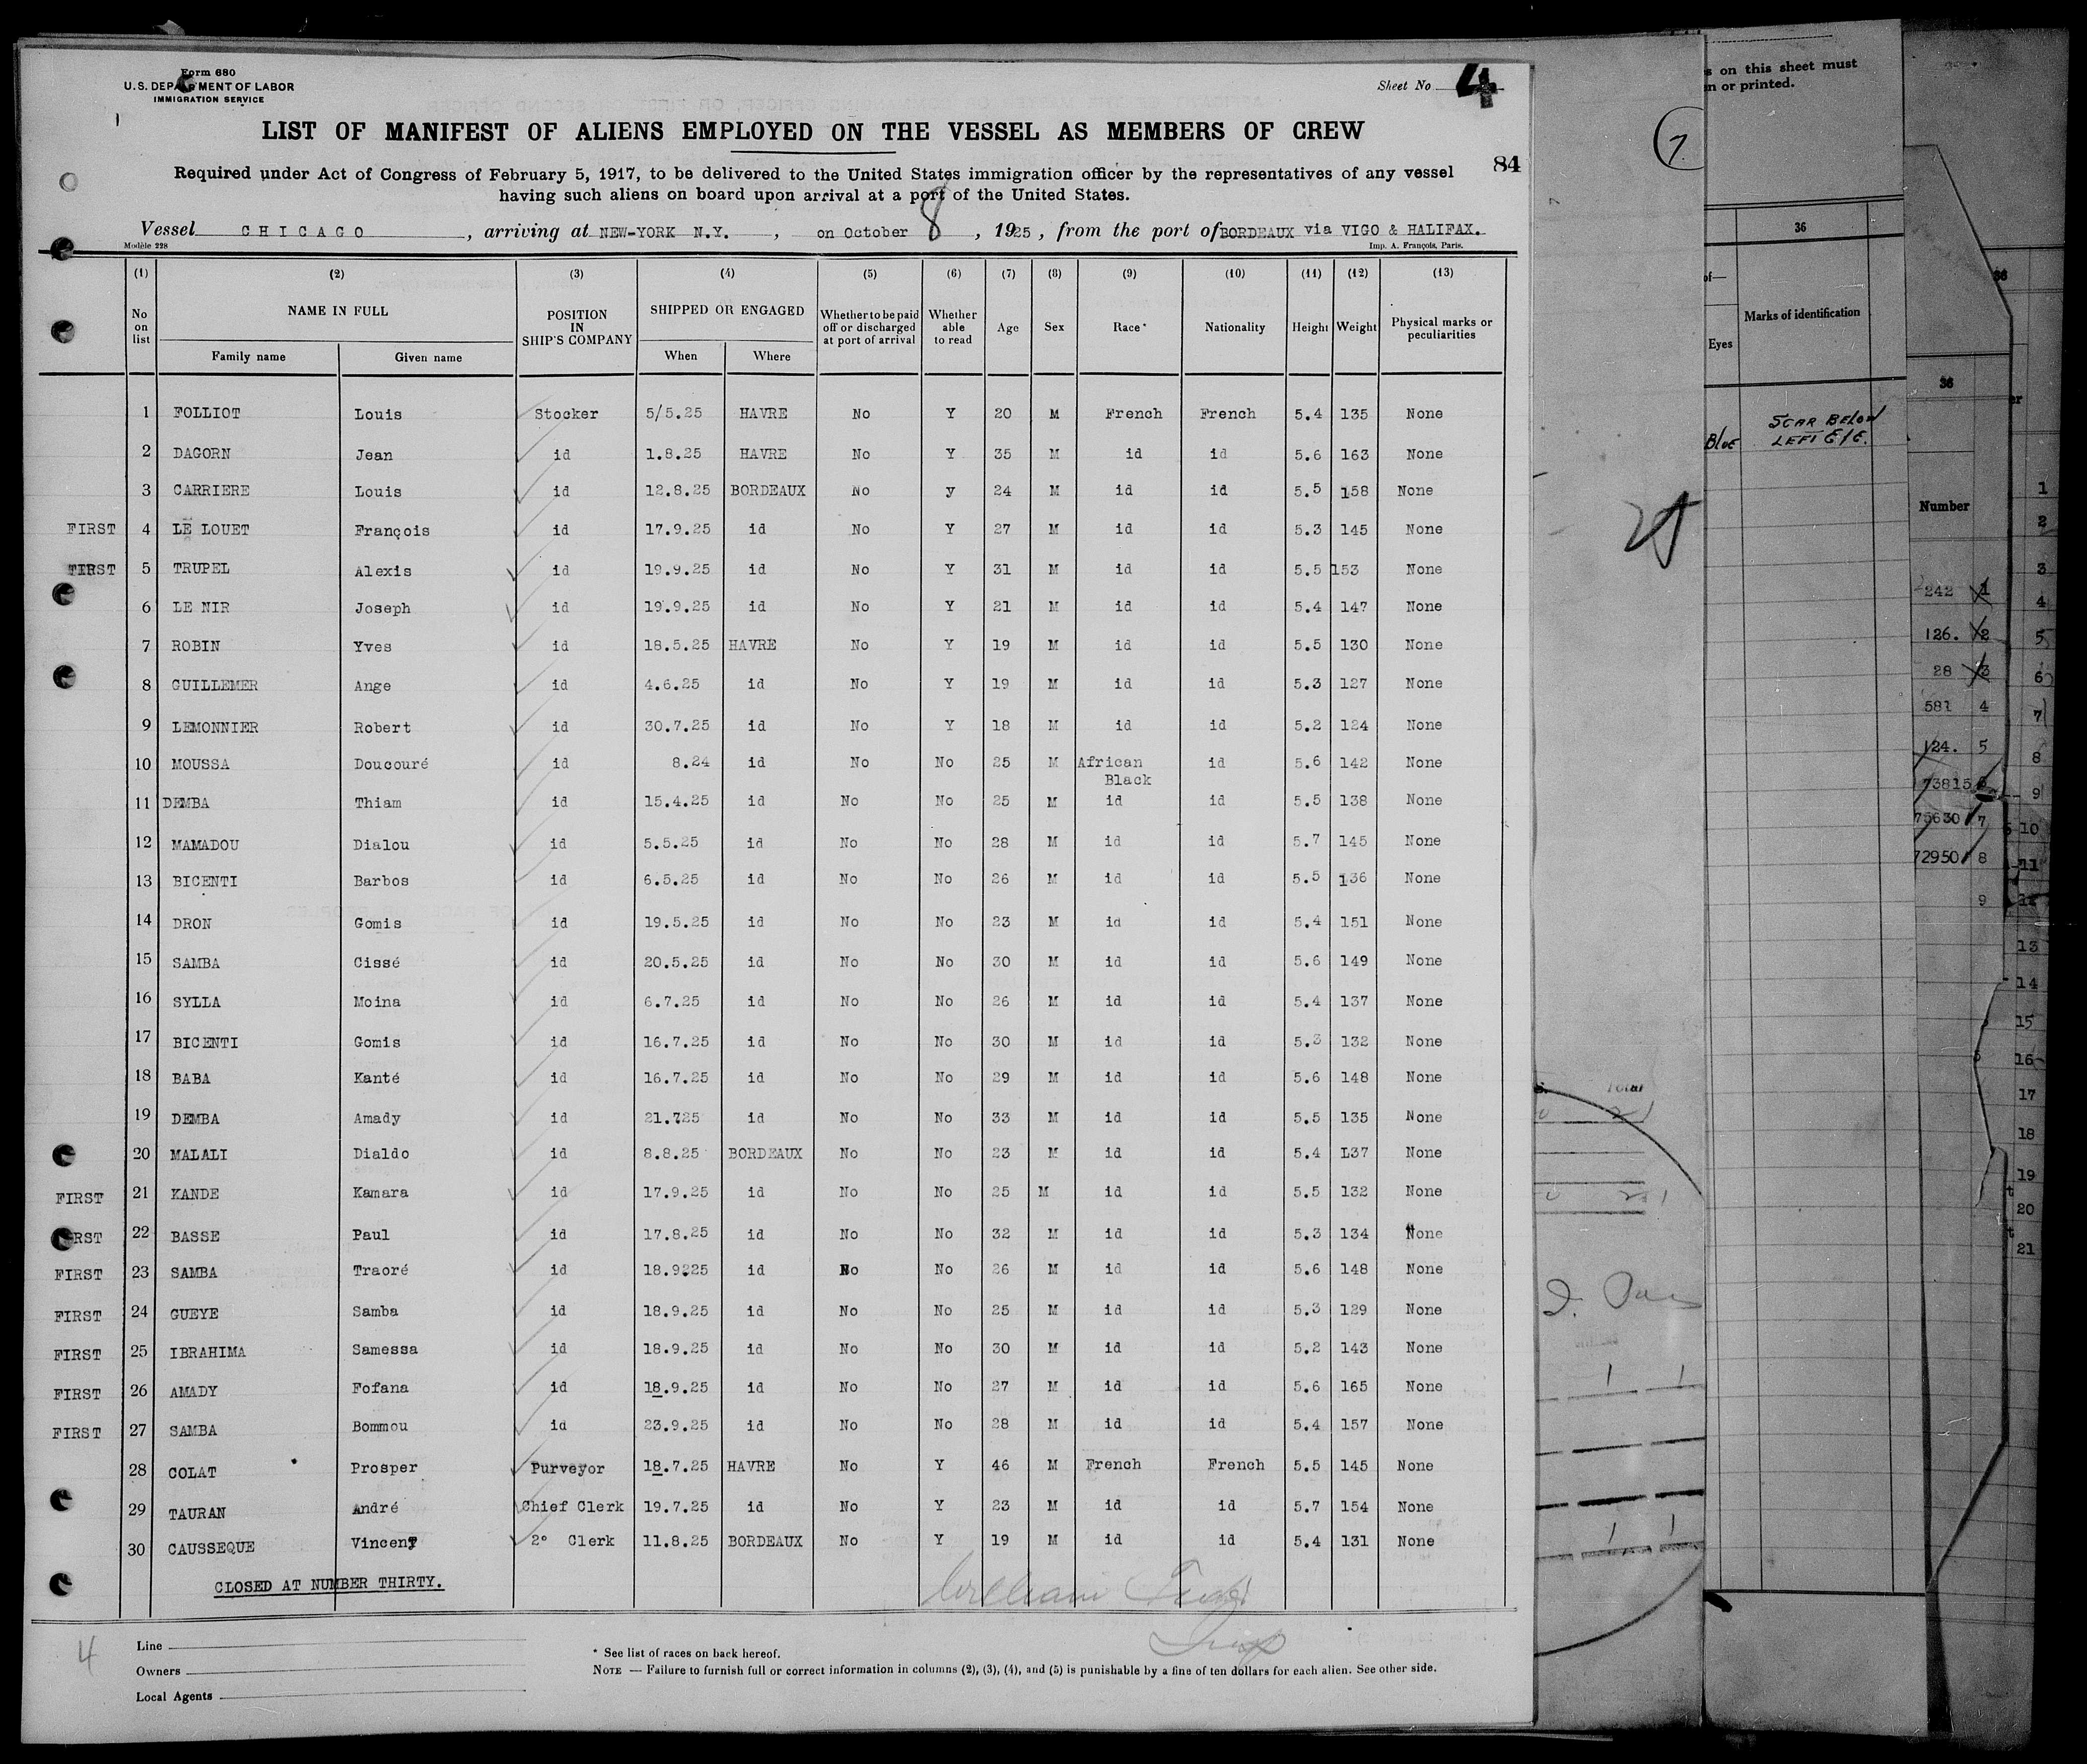 Form 680
U.S. DEPARTMENT OF LABOR
IMMIGRATION SERVICE
Sheet No 4
LIST OF MANIFEST OF ALIENS EMPLOYED ON THE VESSEL AS MEMBERS OF CREW
84
Required under Act of Congress of February 5, 1917, to be delivered to the United States immigration officer by the representatives of any vessel
having such aliens on board upon arrival at a port of the United States.
Vessel CHICAGO, arriving at NEW-YORK N.Y., on October 8, 1925, from the port of BORDEAUX via VIGO & HALIFAX.
Modèle 228
Imp. A. François, Paris.
(1) (2) (3) (4) (5) (6) (7) (8) (9) (10) (11) (12) (13)
No on list NAME IN FULL POSITION IN SHIP'S COMPANY SHIPPED OR ENGAGED Whether to be paid off or discharged at port of arrival Whether able to read Age Sex Race* Nationality Height Weight Physical marks or peculiarities
Family name Given name When Where
1 FOLLIOT Louis Stocker 5/5.25 HAVRE No Y 20 M French French 5.4 135 None
2 DAGORN Jean id 1.8.25 HAVRE No Y 35 M id id 5.6 163 None
3 CARRIERE Louis id 12.8.25 BORDEAUX No y 24 M id id 5.5 158 None
FIRST 4 LE LOUET François id 17.9.25 id No Y 27 M id id 5.3 145 None
FIRST 5 TRUPEL Alexis id 19.9.25 id No Y 31 M id id 5.5 153 None
6 LE NIR Joseph id 19.9.25 id No Y 21 M id id 5.4 147 None
7 ROBIN Yves id 18.5.25 HAVRE No Y 19 M id id 5.5 130 None
8 GUILLEMER Ange id 4.6.25 id No Y 19 M id id 5.3 127 None
9 LEMONNIER Robert id 30.7.25 id No Y 18 M id id 5.2 124 None
10 MOUSSA Doucouré id 8.24 id No No 25 M African Black id 5.6 142 None
11 DEMBA Thiam id 15.4.25 id No No 25 M id id 5.5 138 None
12 MAMADOU Dialou id 5.5.25 id No No 28 M id id 5.7 145 None
13 BICENTI Barbos id 6.5.25 id No No 26 M id id 5.5 136 None
14 DRON Gomis id 19.5.25 id No No 23 M id id 5.4 151 None
15 SAMBA Cissé id 20.5.25 id No No 30 M id id 5.6 149 None
16 SYLLA Moina id 6.7.25 id No No 26 M id id 5.4 137 None
17 BICENTI Gomis id 16.7.25 id No No 30 M id id 5.3 132 None
18 BABA Kanté id 16.7.25 id No No 29 M id id 5.6 148 None
19 DEMBA Amady id 21.725 id No No 33 M id id 5.5 135 None
20 MALALI Dialdo id 8.8.25 BORDEAUX No No 23 M id id 5.4 L37 None
FIRST 21 KANDE Kamara id 17.9.25 id No No 25 M id id 5.5 132 None
RST 22 BASSE Paul id 17.8.25 id No No 32 M id id 5.3 134 None
FIRST 23 SAMBA Traoré id 18.9225 id No No 26 M id id 5.6 148 None
FIRST 24 GUEYE Samba id 18.9.25 id No No 25 M id id 5.3 129 None
FIRST 25 IBRAHIMA Samessa id 18.9.25 id No No 30 M id id 5.2 143 None
FIRST 26 AMADY Fofana id 18.9.25 id No No 27 M id id 5.6 165 None
FIRST 27 SAMBA Bommou id 23.9.25 id No No 28 M id id 5.4 157 None
28 COLAT Prosper Purveyor 18.7.25 HAVRE No Y 46 M French French 5.5 145 None
29 TAURAN André Chief Clerk 19.7.25 id No Y 23 M id id 5.7 154 None
30 CAUSSEQUE VincenT 2° Clerk 11.8.25 BORDEAUX No Y 19 M id id 5.4 131 None
CLOSED AT NUMBER THIRTY.
William
4
Line
Owners
Local Agents
* See list of races on back hereof.
NOTE — Failure to furnish full or correct information in columns (2), (3), (4), and (5) is punishable by a fine of ten dollars for each alien. See other side.
7
Total
on this sheet must
n or printed.
36
of—
Marks of identification
Eyes
Blue SCAR BELOW
LEFT EYE.
36
36
Number
242 1
126. 2
28 3
581 4
124. 5
73815 6
75630 7
72950 8
9
1
2
3
4
5
6
7
8
9
10
11
12
13
14
15
16
17
18
19
20
21